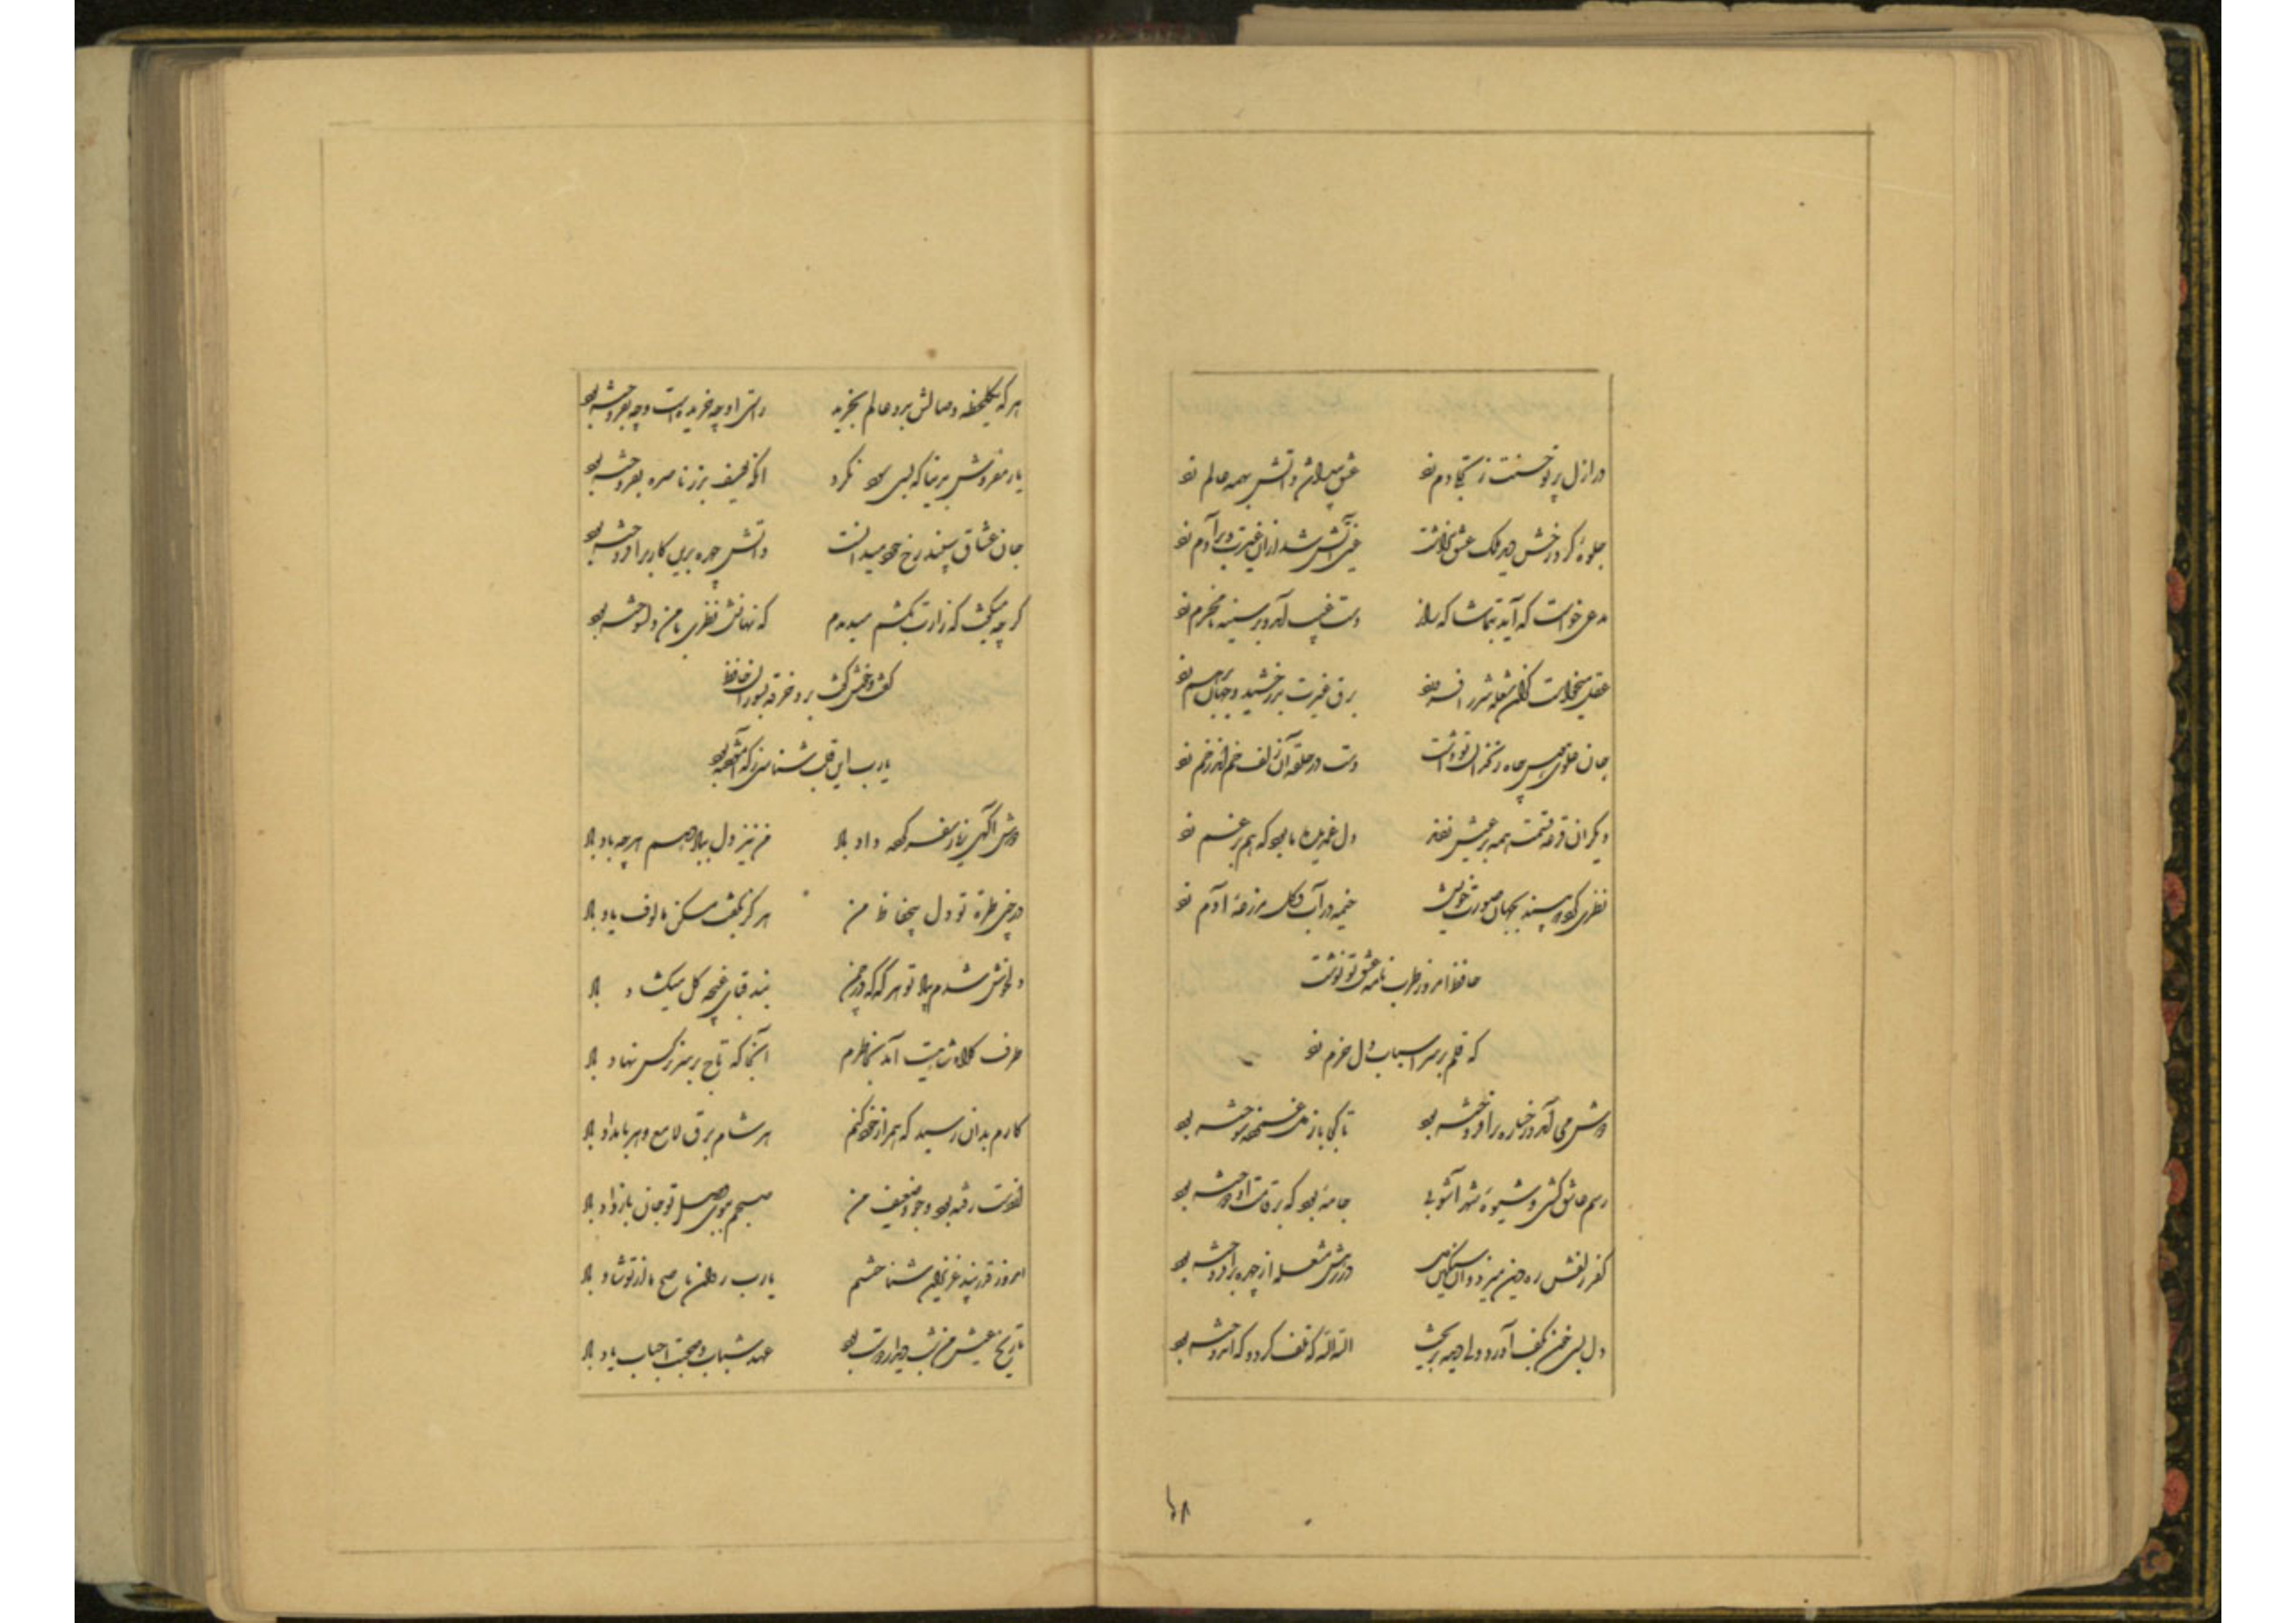 در ازل پرتو حسنت ز تجلی دم زد عشق پیدا شد و آتش بهمه عالم زد
جلوهٔ کرد رخش دید ملک عشق نداشت عین آتش شد ازین غیرت و بر آدم زد
مدعی خواست که آید بتماشا که راز دست غیب آمد و بر سینه نامحرم زد
عقل میخواست کزان شعله افروزد برق غیرت بدرخشید و جهان برهم زد
جان علوی هوس چاه زنخدان تو داشت دست در حلقه آن زلف خم اندر خم زد
دیگران قرعه قسمت همه بر عیش زدند دل غمدیده ما بود که هم بر غم زد
نظری کرد که بیند بجهان صورت خویش خیمه در آب و گل مزرعهٔ آدم زد
حافظ آنروز طرب نامه عشق تو نوشت
که قلم بر سر اسباب دل خرم زد
دوش می آمد و رخساره برافروخته بود تا کجا باز دل غمزده سوخته بود
رسم عاشق کشی و شیوهٔ شهر آشوبی جامهٔ بود که بر قامت او دوخته بود
کفر زلفش ره دین میزد و آن سنگین دل در رهش مشعله از چهره برافروخته بود
دل بسی خون بکف آورد ولی دیده بریخت الله الله که تلف کرد و که اندوخته بود
۱۵۸
هر که یکلحظه وصالش بدو عالم بخرید راستی او چه خریدست و چه بفروخته بود
یار مفروش بدنیا که بسی سود نکرد آنکه یوسف بزر ناسره بفروخته بود
جان عشاق سپند رخ خود میدانست و آتش چهره بدین کار برافروخته بود
گر چه میگفت که زارت بکشم میدیدم که نهانش نظری با من دلسوخته بود
گفت و خوش گفت برو خرقه بسوزان حافظ
یارب این قلب شناسی ز که آموخته بود
دوش آگهی ز یار سفر کرده داد باد من نیز دل بباد دهم هر چه باد باد
در چین طره تو دل بیحفاظ من هرگز نگفت مسکن مالوف یاد باد
دلخوش شدم بیاد تو هر گه که در چمن بند قبای غنچه گل میگشاد باد
طرف کلاه شاهیت آمد بخاطرم آنجا که تاج بر سر نرگس نهاد باد
کارم بدان رسید که همراز خود کنم هر شام برق لامع و هر بامداد باد
از دست رفته بود وجود ضعیف من صبحم ببوی وصل تو جان باز داد باد
امروز قدر پند عزیزان شناختم یارب روان ناصح ما از تو شاد باد
تاریخ عیش من شب دیدار دوست بود عهد شباب و صحبت احباب یاد باد